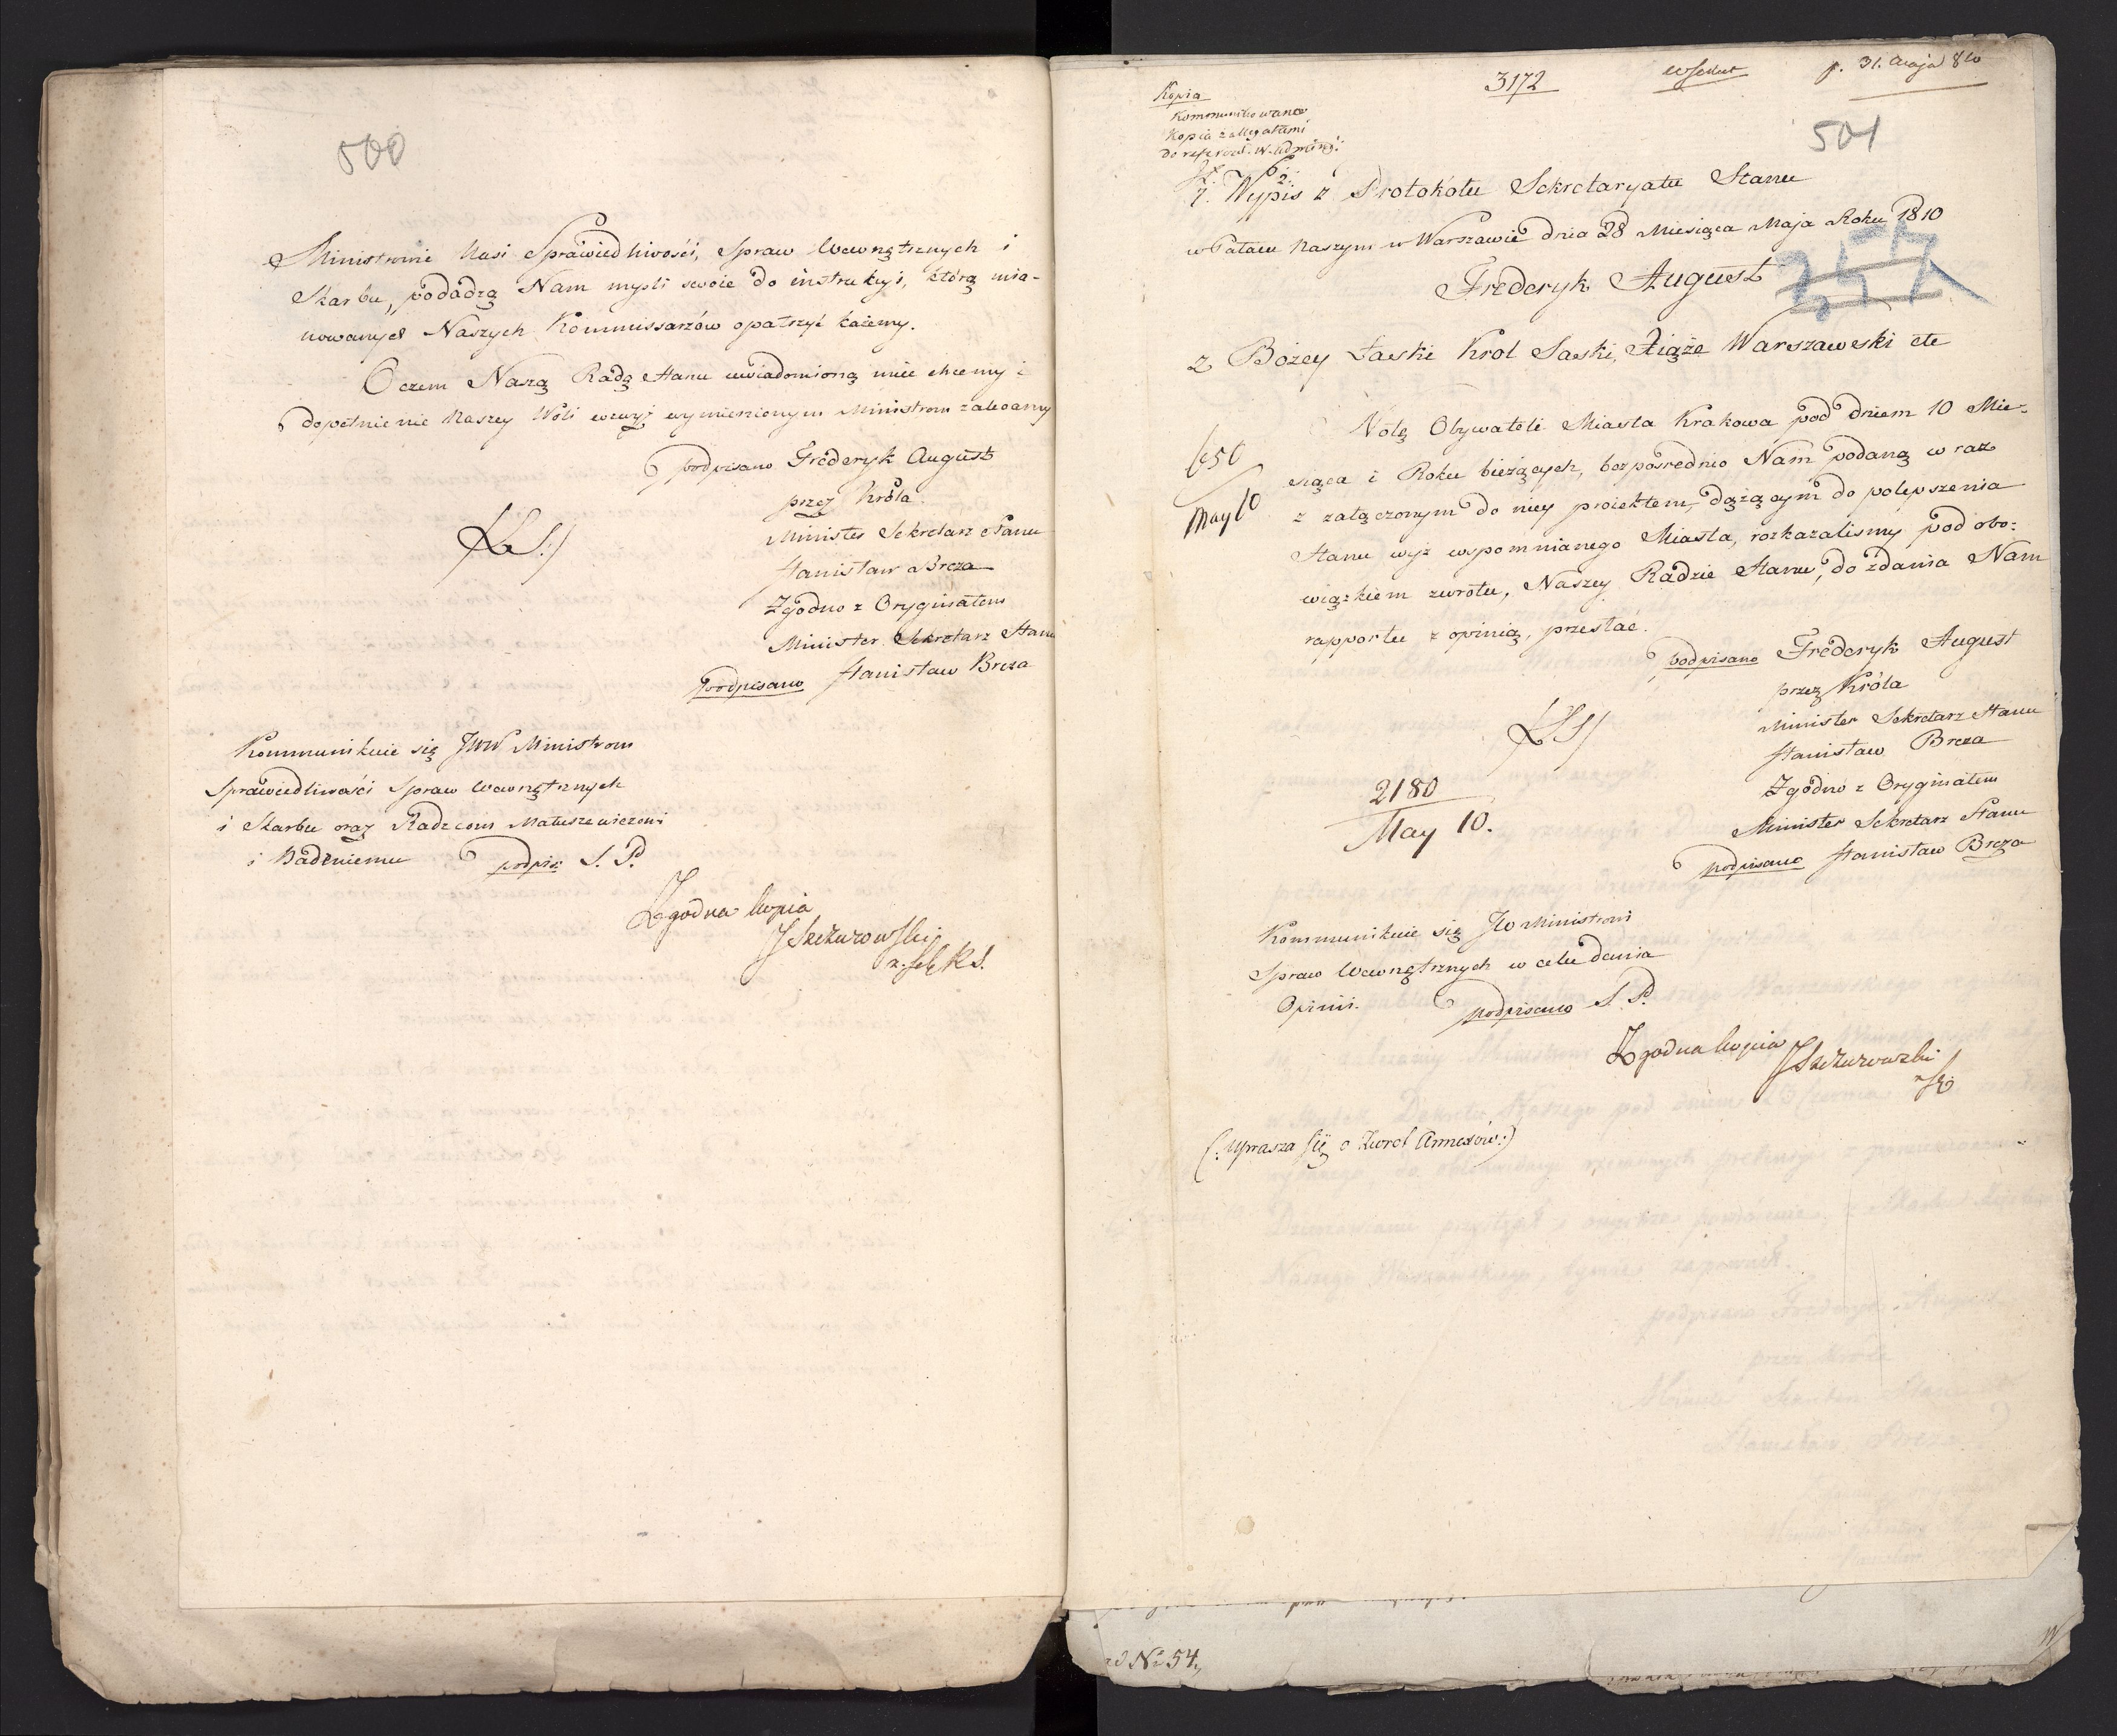 500
Ministrowie Nasi Sprawiedliwości, Spraw Wewnętrznych i
Skarbu, podadzą Nam myśli swoie do instrukcyi, którą mia-
nowanych Naszych Kommissarzów opatrzyć każemy.
O czem Naszą Radę Stanu uwiadomioną mieć chcemy i
dopełnienie Naszey Woli wzwyż wymienionym Ministrom zalecamy
podpisano Fréderyk August
przez Króla
Minister Sekretarz Stanu
Stanisław Breza
(L.S:)
Zgodno z Oryginałem
Minister Sekretarz Stanu
podpisano Stanisław Breza
Kommunikuie się JWW Ministrom
Sprawiedliwości Spraw Wewnętrznych
i Skarbu oraz Radzcom Matuszewiczowi
i Badeniemu podpis: S. P.
Zgodna kopia
JSzczurowski
z. Sek R S.
Kopia
Kommunikowana
Kopia z allegatami
do referend. W. Admin:
3172
p. 31. Maja 810
501
7. Wypis z Protokółu Sekretaryatu Stanu
w Pałacu Naszym w Warszawie dnia 28 Miesiąca Maja Roku 1810
Fréderyk August
z Bożey Łaski Krol Saski, Xiąże Warszawski etc
Notę Obywateli Miasta Krakowa pod dniem 10 Mie-
siąca i Roku bieżących, bezpośrednio Nam podaną w raz
z załączonym do niey proiektem, dążącym do polepszenia
Stanu wyż wspomnianego Miasta, rozkazalismy pod obo:
wiązkiem zwrotu, Naszey Radzie Stanu, do zdania Nam
rapportu z opinią, przesłać.
650
May 10
podpisano Fréderyk August
przez Króla
Minister Sekretarz Stanu
Stanisław Breza
(LS)
Zgodno z Oryginałem
Minister Sekretarz Stanu
podpisano Stanisław Breza
2180
May 10.
Kommunikuie się JW Ministrowi
Spraw Wewnętrznych w celu dania
Opinii. podpisano S. P.
Zgodna kopia
JSzczurowski
(: Uprasza się o zwrot Annexów:)
ad No 54